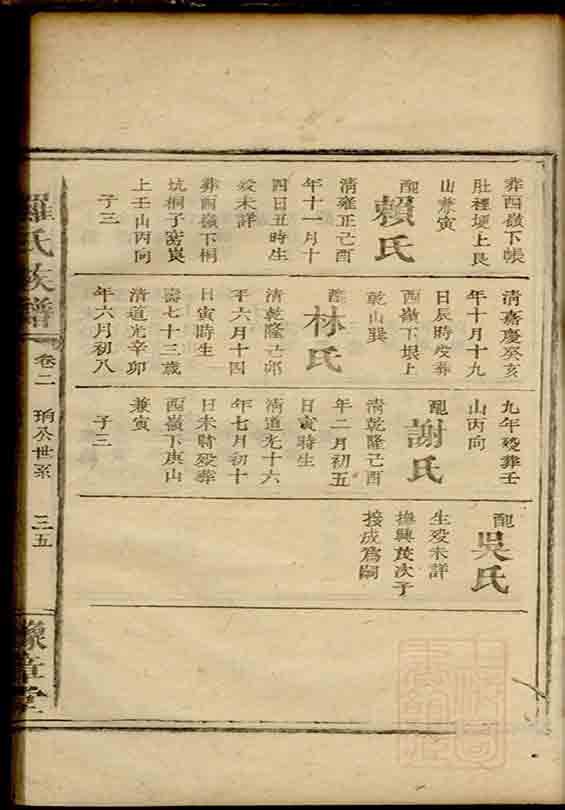 葬西嶺下帳
肚裡埂上艮
山兼寅
配
賴氏
清雍正己酉
年十一月十
四日丑時生
歿未詳
葬西嶺下桐
坑桐子窩良
上壬山丙向
子三
清嘉慶癸亥
年十月十九
日辰時歿葬
西嶺下垠上
乾山巽
配
林氏
清乾隆己卯
年六月十四
日寅時生
壽七十三歲
清道光辛卯
年六月初八
九年歿葬壬
山丙向
配
謝氏
清乾隆己酉
年二月初五
日寅時生
清道光十六
年七月初十
日未時歿葬
西嶺下庚山
兼寅
子三
配
吳氏
生歿未詳
撫興茂次子
接成為嗣
羅氏族譜
卷二
公世系
三五
豫章堂